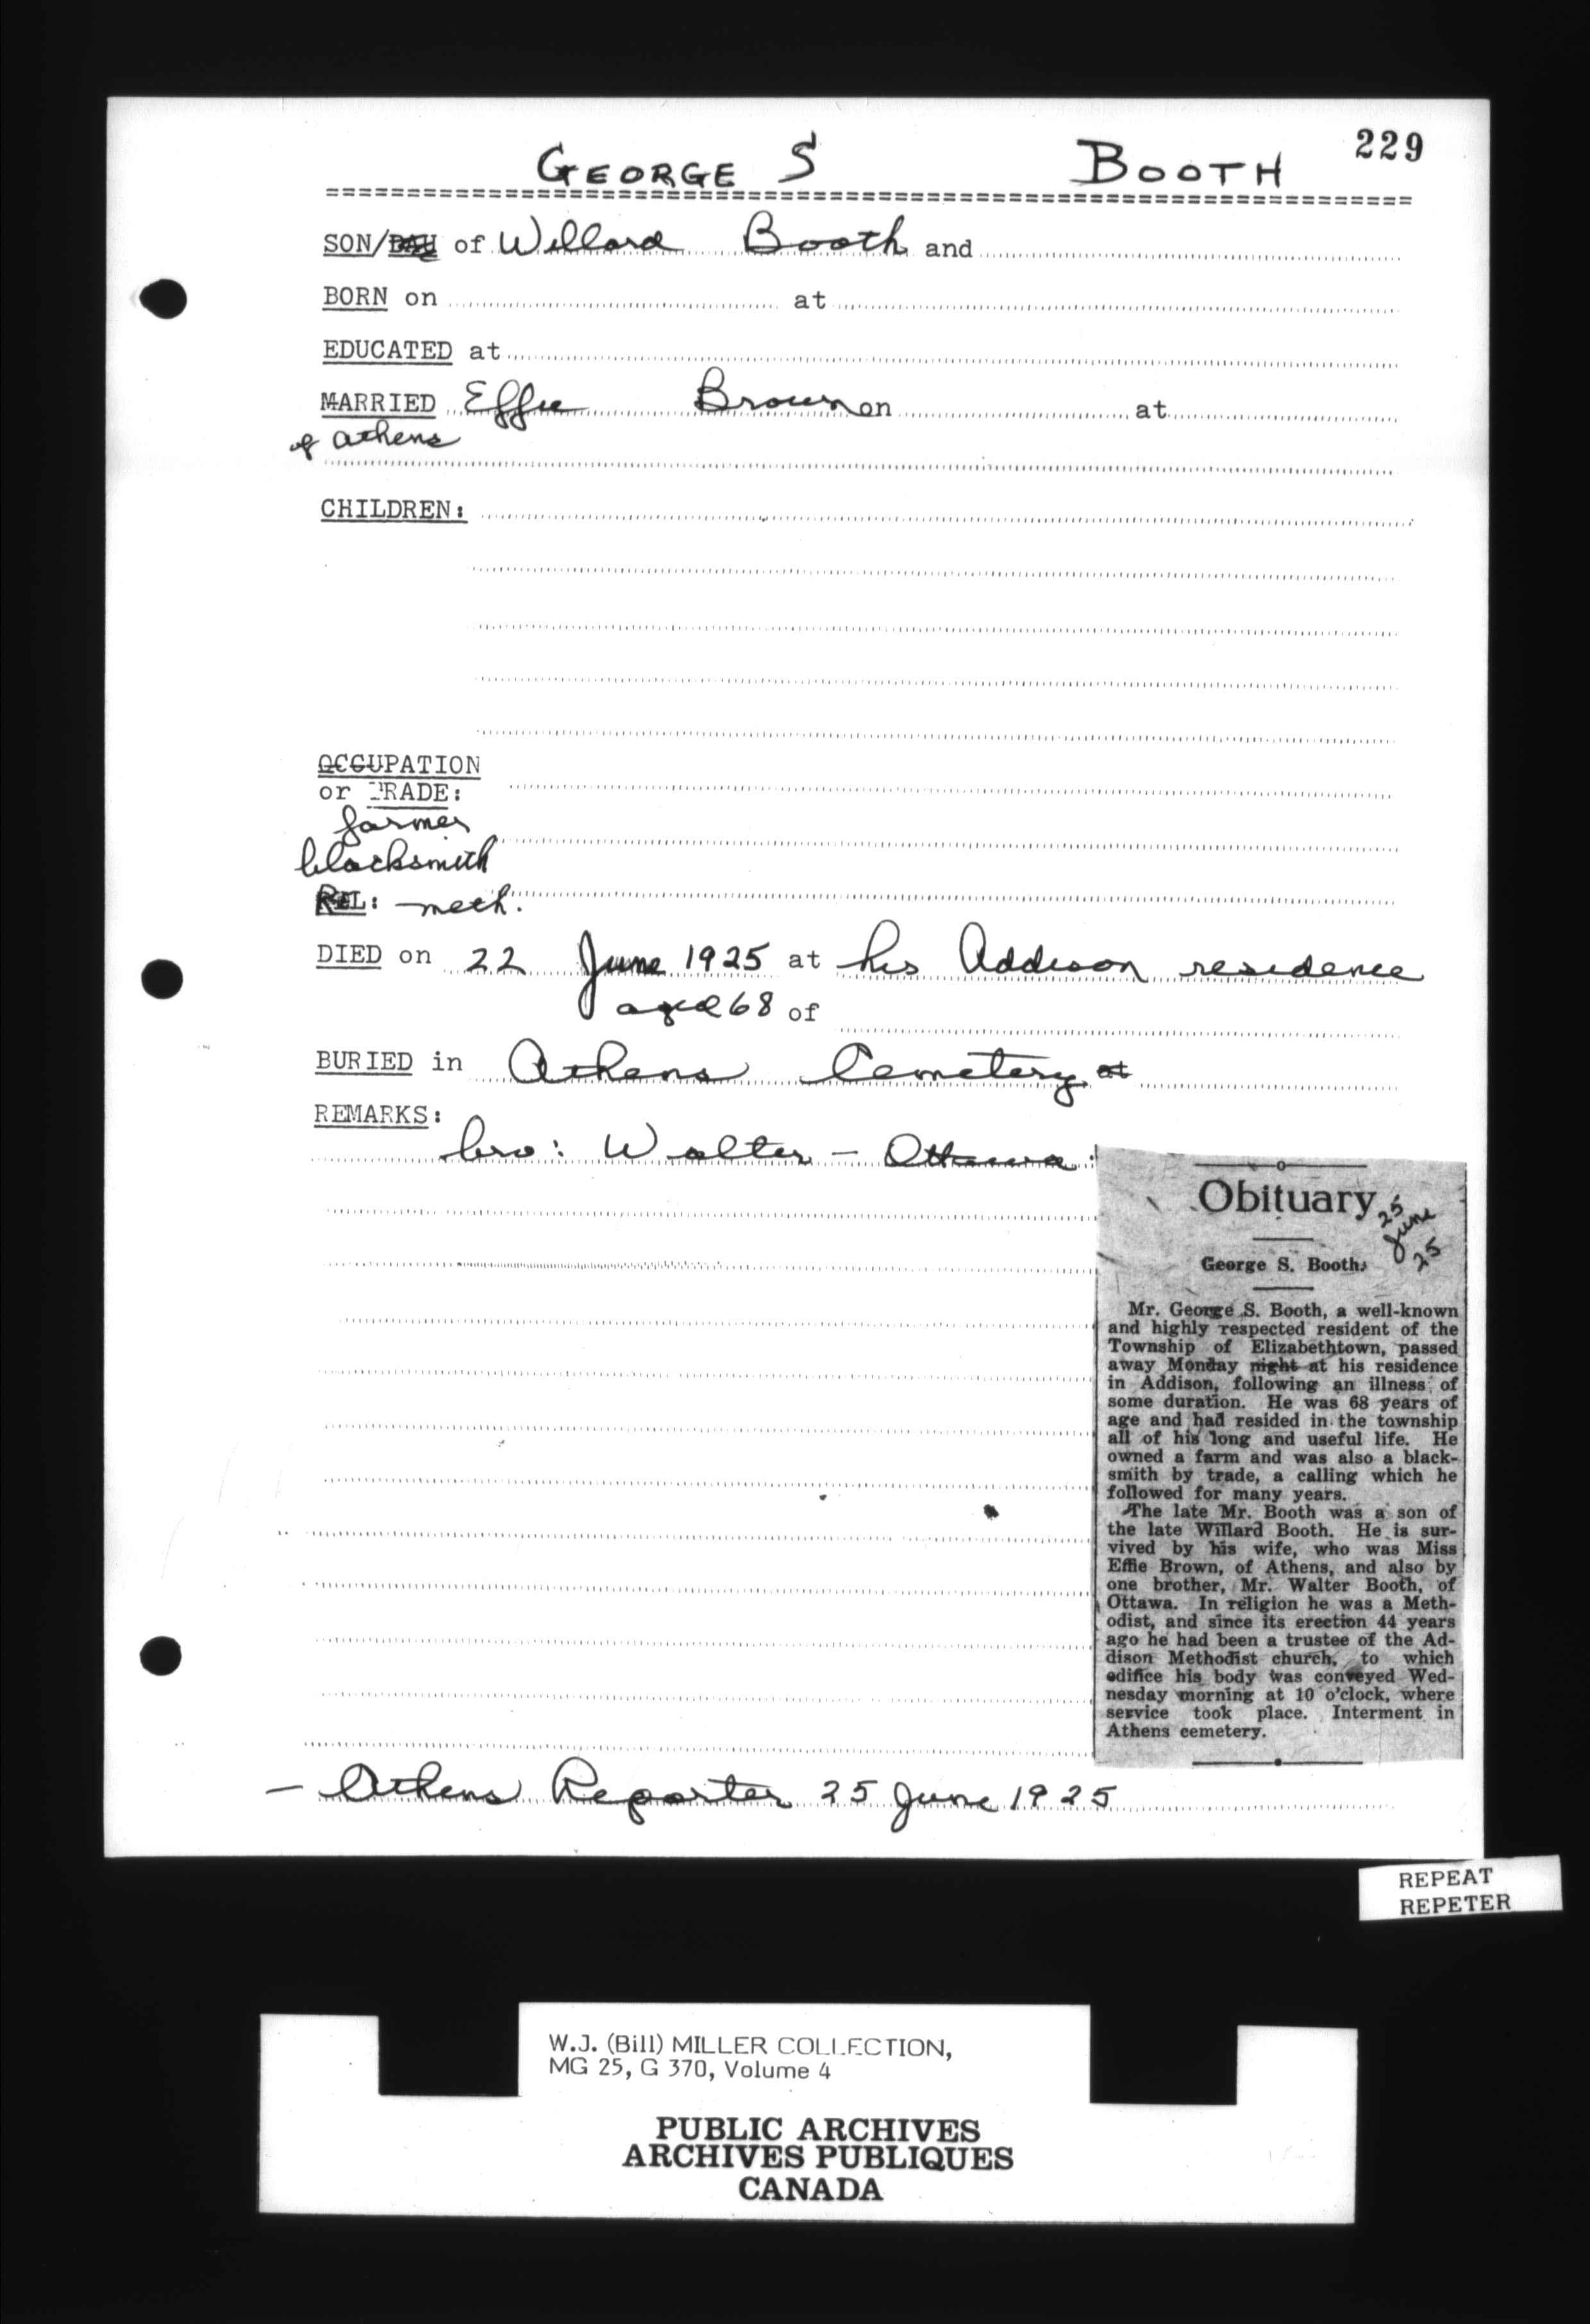 229
GEORGE S BOOTH
SON/DAU of Willard Booth and
BORN on at
EDUCATED at
MARRIED Effie Brown on at
of Athens
CHILDREN:
OCCUPATION
or TRADE:
farmer
blacksmith
REL: meth.
DIED on 22 June 1925 at his Addison residence
aged 68 of
BURIED in Athens Cemetery at
REMARKS:
bro: Walter - Ottawa.
Obituary
25 June 25
George S. Booth
Mr. George S. Booth, a well-known
and highly respected resident of the
Township of Elizabethtown, passed
away Monday night at his residence
in Addison, following an illness of
some duration. He was 68 years of
age and had resided in the township
all of his long and useful life. He
owned a farm and was also a black-
smith by trade, a calling which he
followed for many years.
The late Mr. Booth was a son of
the late Willard Booth. He is sur-
vived by his wife, who was Miss
Effie Brown, of Athens, and also by
one brother, Mr. Walter Booth, of
Ottawa. In religion he was a Meth-
odist, and since its erection 44 years
ago he had been a trustee of the Ad-
dison Methodist church, to which
edifice his body was conveyed Wed-
nesday morning at 10 o'clock, where
service took place. Interment in
Athens cemetery.
- Athens Reporter 25 June 1925
REPEAT
REPETER
W.J. (Bill) MILLER COLLECTION,
MG 25, G 370, Volume 4
PUBLIC ARCHIVES
ARCHIVES PUBLIQUES
CANADA